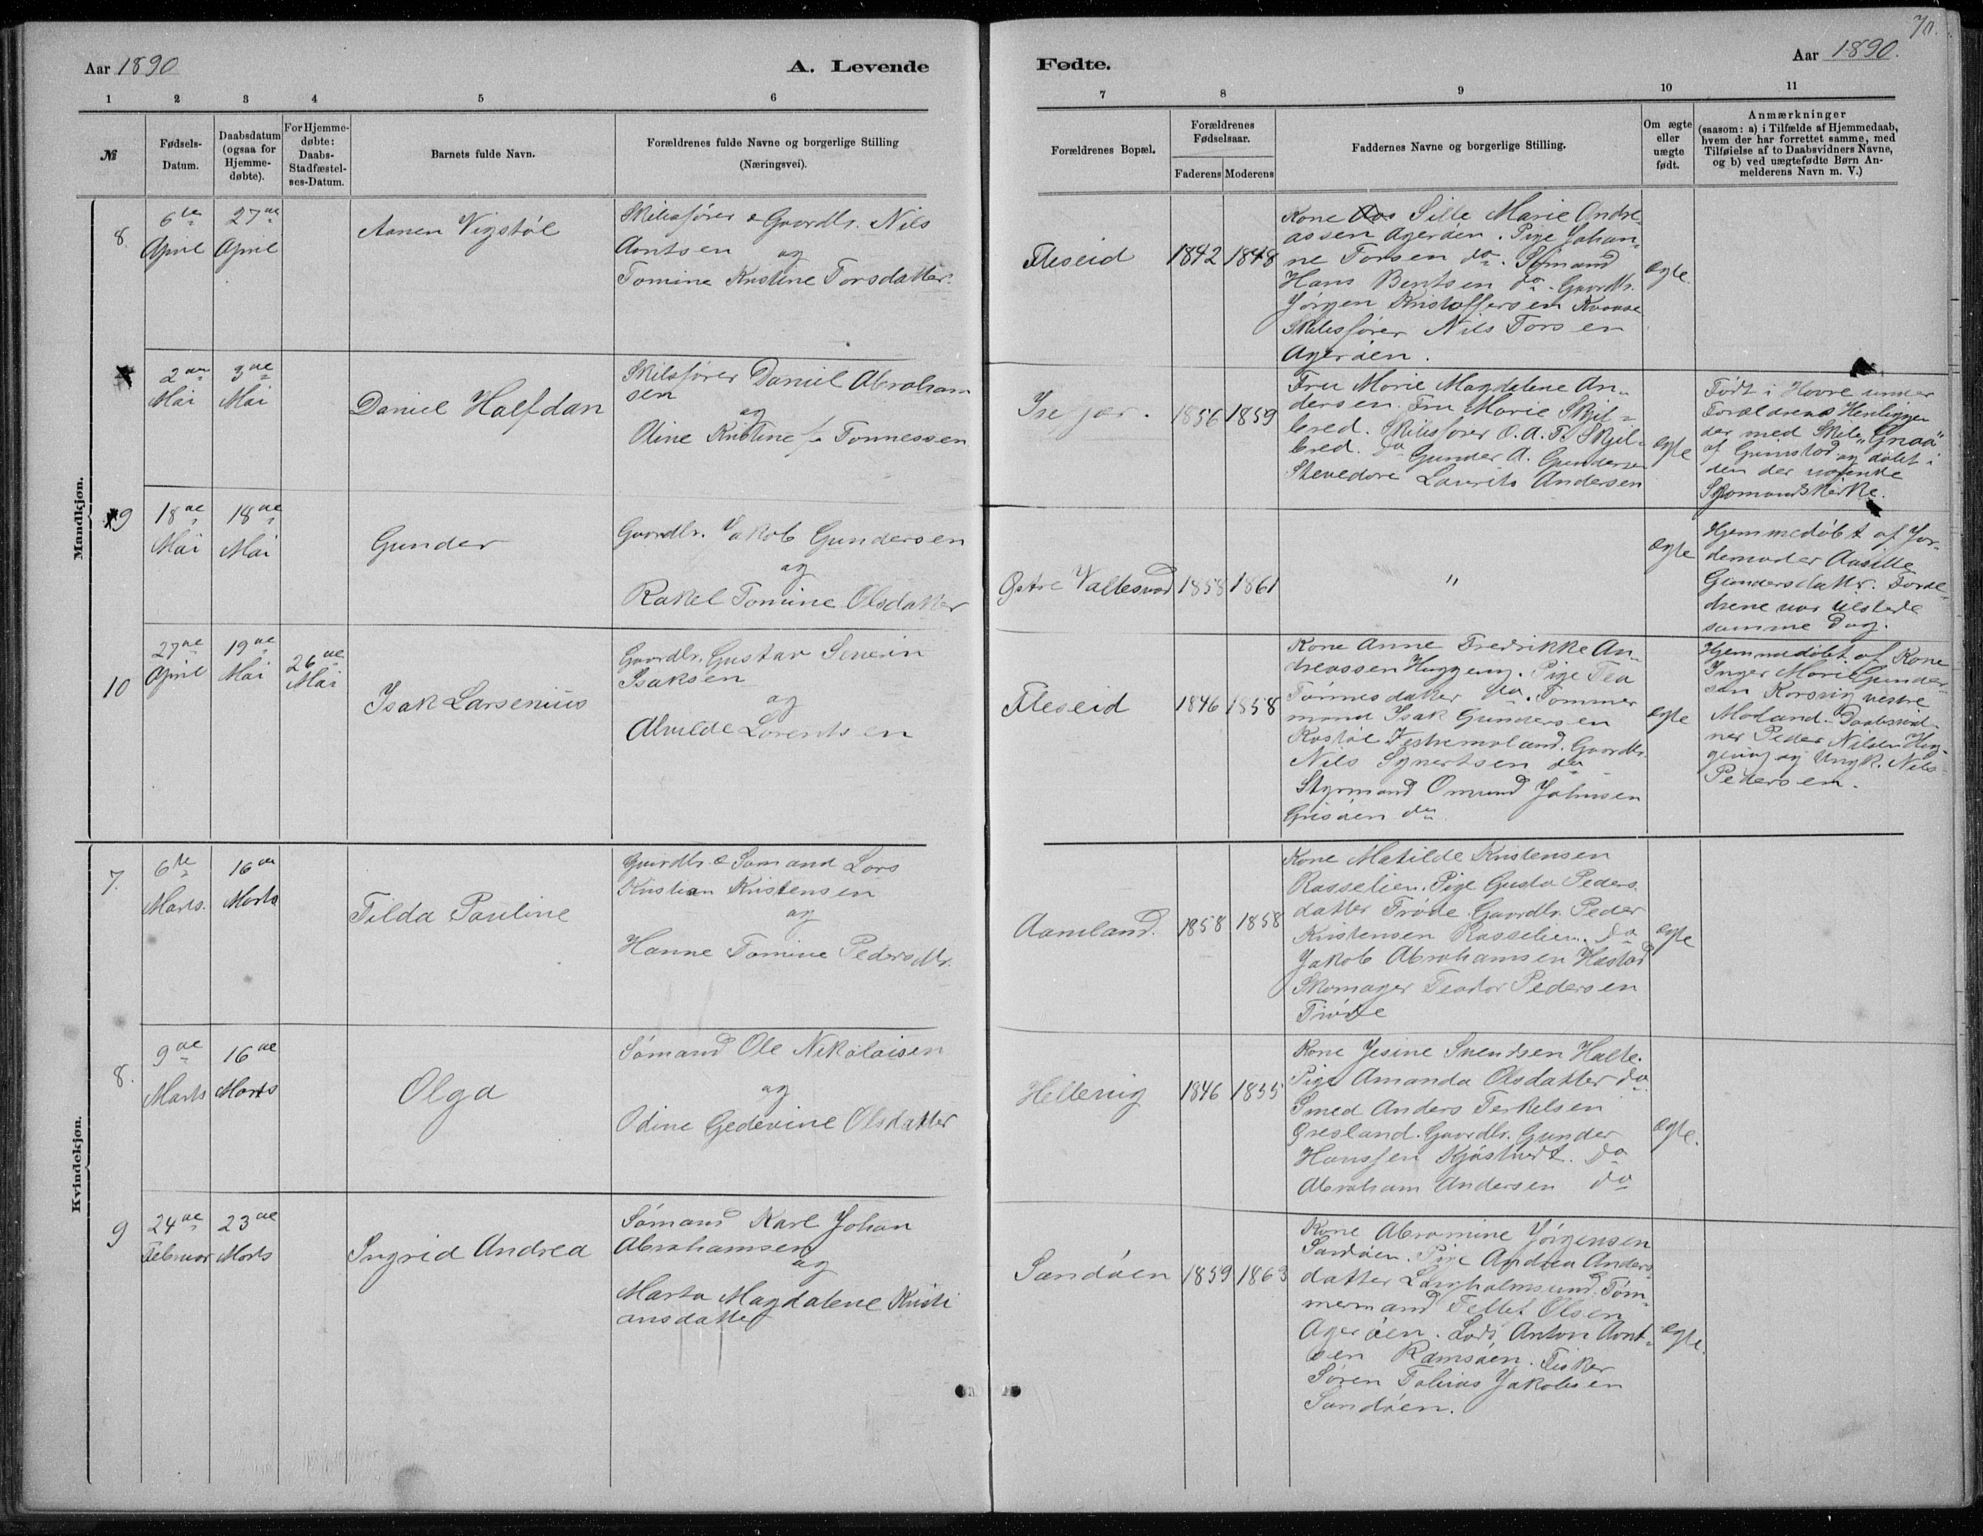 70.
Aar 1890
A. Levende
Fødte.
Aar 1890.
1 2 3 4 5 6 7 8 9 10 11
№
Fødsels-
Datum.
Daabsdatum
(ogsaa for
Hjemme-
døbte).
For Hjemme-
døbte:
Daabs-
Stadfæstel-
ses-Datum.
Barnets fulde Navn.
Forældrenes fulde Navne og borgerlige Stilling
(Næringsvei).
Forældrenes Bopæl.
Forældrenes
Fødselsaar.
Faderens Moderens
Faddernes Navne og borgerlige Stilling.
Om ægte
eller
uægte
født.
Anmærkninger
(saasom: a) i Tilfælde af Hjemmedaab,
hvem der har forrettet samme, med
Tilføielse af to Daabsvidners Navne,
og b) ved uægtefødte Børn An-
melderens Navn m. V.)
Mandkjøn.
8.
6te
April
27de
April
Aanen Vigstøl
Skibsfører & Gaardbr. Nils
Aantsen
og
Tomine Kristine Torsdatter
Fleseid
1842 1848
Kone Sille Marie Andre
assen Agerøen. Pige Johan-
ne Torsen do. Sømand
Hans Bentsen do. Gaardb.
Jørgen Kristoffersen
Skibsfører Nils Torsen
Agerøen.
ægte
2den
Mai
3de
Mai
Daniel Halfdan
Skibsfører Daniel Abraham
sen
og
Oline Kristine f. Tønnessen
1856 1859
Fru Marie Magdalene An-
dersen. Fru Marie Skjel-
bred. Skibsfører O. A. T. Skjel-
bred. do Gunder A. Gundersen
Stevedore Laurits Andersen
ægte
Født i Havre under
Forældrenes Henliggen
der med Skib "Gnaa"
af Grimstad og døbt i
den der værende
Sjømandskirke.
9
18de
Mai
18de
Mai
Gunder
Gaardbr. Jakob Gundersen
og
Rakel Tomine Olsdatter
Østre Vallesværd
1858 1861
"
ægte
Hjemmedøbt af Jor-
demoder Aasille
Gundersdattr. Foræl-
drene var tilstede
samme Dag.
10
27de
April
19de
Mai
26de
Mai
Isak Larsenius
Gaardbr. Gustav Severin
Isaksen
og
Alvilde Lorentsen
Fleseid
1846 1858
Kone Anne Fredrikke An-
dreassen Huggeng. Pige Tea
Tønnesdatter do. Tømmer
mand Isak Gundersen
Rostøl Vestremoland. Gaardbr.
Nils Synertsen do
Styrmand Omund Johnsen
Grisøen do
ægte
Hjemmedøbt af Kone
Inger Marie Gunder-
sen Korsvig vestre
Moland. Daabsvid-
ner Peder Nilsen Hug-
geng og Ungk. Nils
Pedersen.
Kvindekjøn.
7.
6te
Marts.
16de
Marts
Tilda Pauline
Gaardbr. & Sømand Lars
Kristian Kristensen
og
Hanne Tomine Pedersdtr.
Aamland.
1858 1858
Kone Matilde Kristensen
Rasselien. Pige Gusta Peders
datter Trøde. Gaardbr. Peder
Kristensen Rasselien. do
Jakob Abrahamsen Hæstad
Skomager Teodor Pedersen
Trøde
ægte
8.
9de
Marts
16de
Marts
Olga
Sømand Ole Nikolaisen
og
Odine Gedevine Olsdatter
Hellevig
1846 1855
Kone Jesine Svendsen Halte.
Pige Amanda Olsdatter do
Smed Anders Terkelsen
Øresland. Gaardbr. Gunder
Hanssen Kjøstvedt. do
Abraham Andersen do
ægte.
9
24de
Februar
23de
Marts
Ingrid Andrea
Sømand Karl Johan
Abrahamsen
og
Marta Magdalene Kristi
ansdatter
Sandøen
1859 1863
Kone Abramine Jørgensen
Sandøen. Pige Andrea Anders-
datter Langholmsund. Tøm-
mermand Tellef Olsen
Agerøen. Lods Anton Aant-
sen Ramsøen. Fisker
Søren Tobias Jakobsen
Sandøen.
ægte.